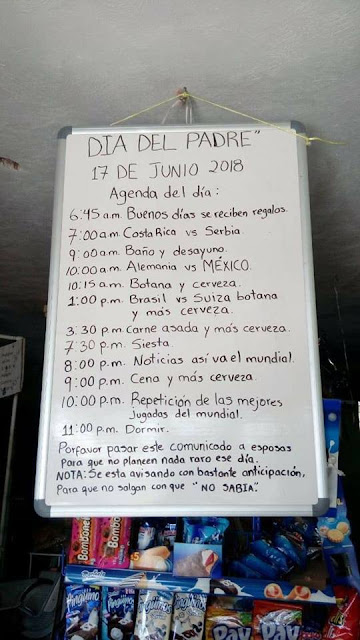 DIA DEL PADRE"
17 DE JUNIO 2018
Agenda del día:
6:45 a.m. Buenos días se reciben regalos.
7:00 a.m. Costa Rica vs Serbia.
9:00 a.m. Baño y desayuno.
10:00 a.m. Alemania vs MÉXICO.
10:15 a.m. Botana y cerveza.
1:00 p.m. Brasil vs Suiza botana
y más cerveza.
3:30 p.m. Carne asada y más cerveza.
7:30 p.m. Siesta.
8:00 p.m. Noticias así va el mundial.
9:00 p.m. Cena y más cerveza.
10:00 p.m. Repetición de las mejores
jugadas del mundial.
11:00 p.m. Dormir.
Porfavor pasar este comunicado a esposas
Para que no planeen nada raro ese día.
NOTA: Se esta avisando con bastante anticipación,
Para que no salgan con que "NO SABIA".
Bombones
Pingüinos
Pingüinos